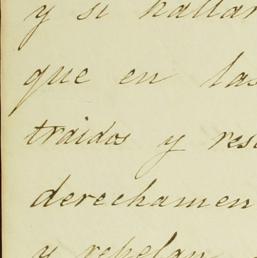 y si hallar
que en las
traidos y res
derechamen
y rebelan